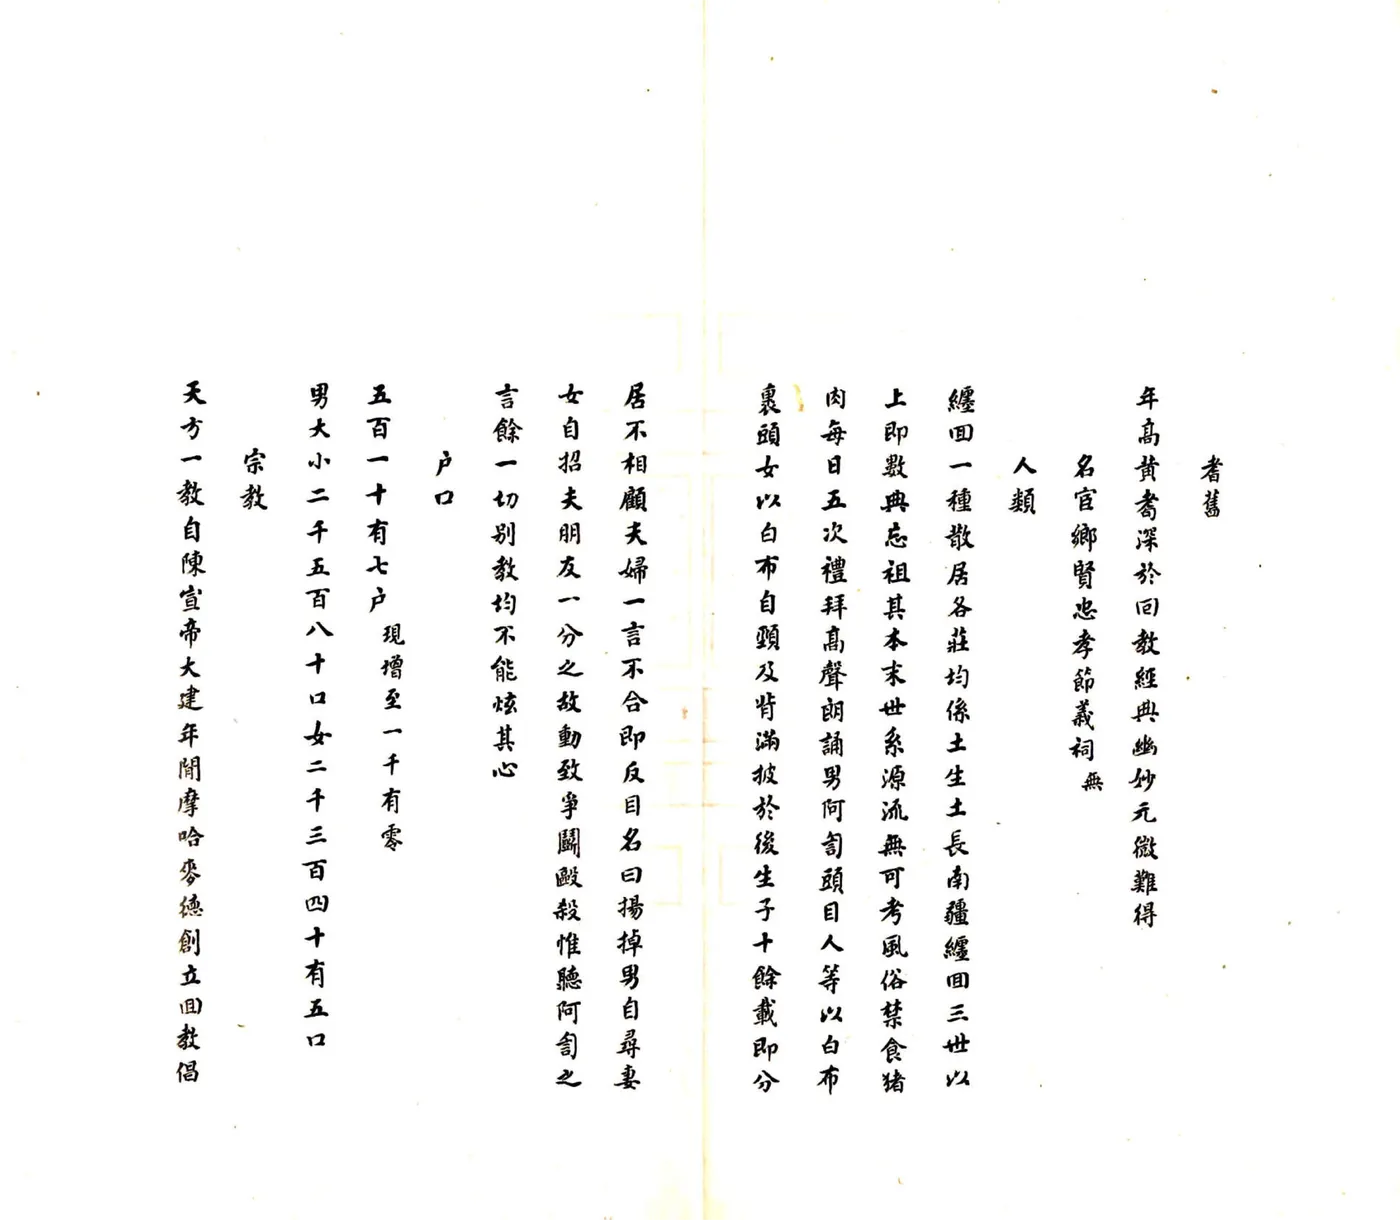 耆舊
年高黃耇深於回教經典幽妙元微難得
名宦鄉賢忠孝節義祠無
人類
纏回一種散居各莊均係土生土長南疆纏回三世以
上即數典忘祖其本末世系源流無可考風俗禁食猪
肉每日五次禮拜高聲朗誦男阿訇頭目人等以白布
裹頭女以白布自頸及背滿披於後生子十餘載即分
居不相顧夫婦一言不合即反目名曰揚掉男自尋妻
女自招夫朋友一分之故動致爭鬭毆殺惟聽阿訇之
言餘一切别教均不能炫其心
户口
五百一十有七户現增至一千有零
男大小二千五百八十口女二千三百四十有五口
宗教
天方一教自陳宣帝大建年間摩哈麥德創立回教倡